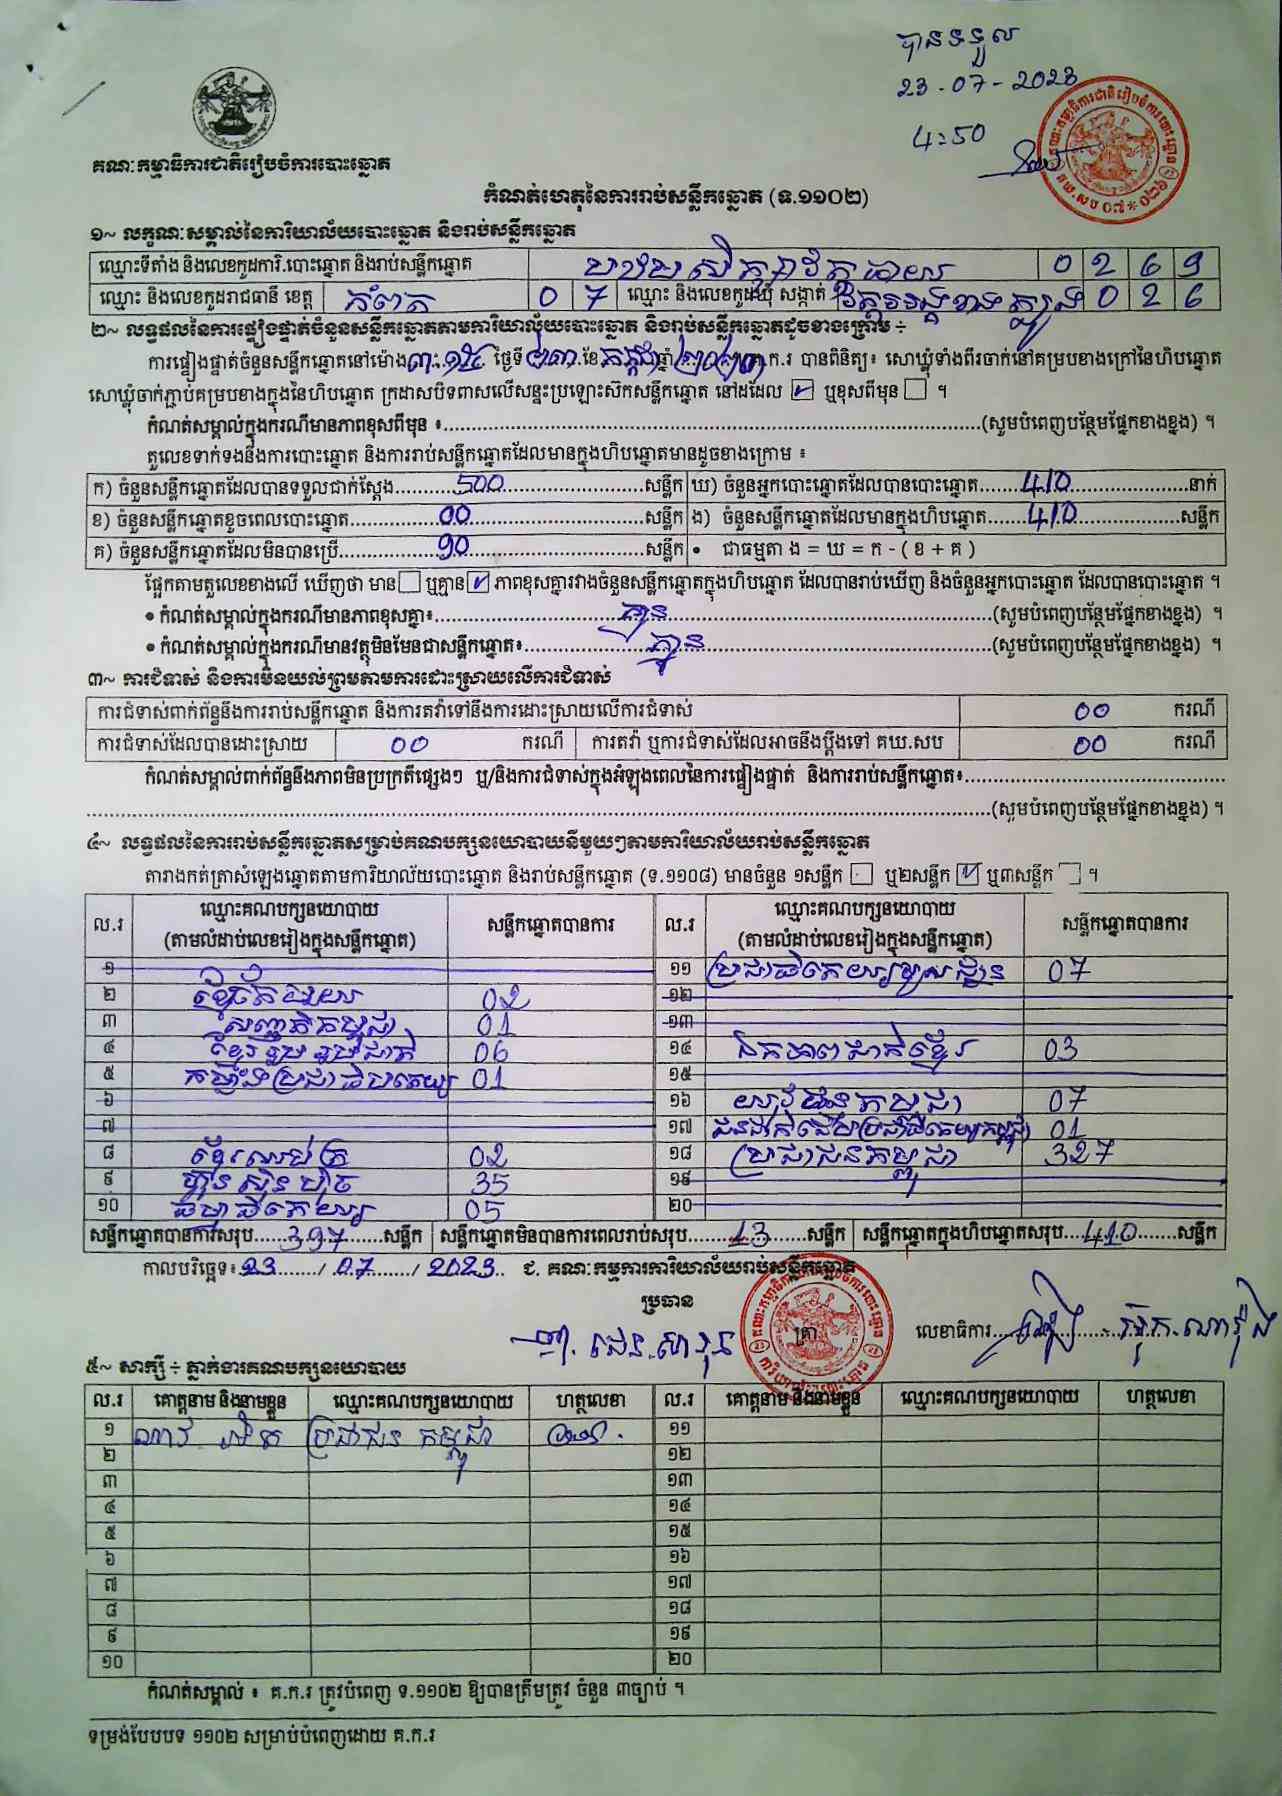 បានទទួល
23-07-2023
4:50
គណៈកម្មាធិការជាតិរៀបចំការបោះឆ្នោត
កំណត់ហេតុនៃការរាប់សន្លឹកឆ្នោត (ទ.១១០២)
១~ លក្ខណៈសម្គាល់នៃការិយាល័យបោះឆ្នោត និងរាប់សន្លឹកឆ្នោត
ឈ្មោះទីតាំង និងលេខកូដការិ.បោះឆ្នោត និងរាប់សន្លឹកឆ្នោត 0 2 6 9
ឈ្មោះ និងលេខកូដរាជធានី ខេត្ត កំពត 0 7 ឈ្មោះ និងលេខកូដឃុំ សង្កាត់ 0 2 6
២~ លទ្ធផលនៃការផ្ទៀងផ្ទាត់ចំនួនសន្លឹកឆ្នោតតាមការិយាល័យបោះឆ្នោត និងរាប់សន្លឹកឆ្នោតដូចខាងក្រោម ÷
ការផ្ទៀងផ្ទាត់ចំនួនសន្លឹកឆ្នោតនៅម៉ោង ៣:១៥ ថ្ងៃទី ២៣ ខែ កក្កដា ឆ្នាំ ២០២៣ គ.ក.រ បានពិនិត្យ៖ សោឃ្លុំទាំងពីរចាក់នៅគម្របខាងក្រៅនៃហិបឆ្នោត
សោឃ្លុំចាក់ភ្ជាប់គម្របខាងក្នុងនៃហិបឆ្នោត ក្រដាសបិទពាសលើសន្ទះប្រឡោះស៊កសន្លឹកឆ្នោត នៅដដែល ☑ ឬខុសពីមុន ☐ ។
កំណត់សម្គាល់ក្នុងករណីមានភាពខុសពីមុន ៖......(សូមបំពេញបន្ថែមផ្នែកខាងខ្នង) ។
តួលេខទាក់ទងនឹងការបោះឆ្នោត និងការរាប់សន្លឹកឆ្នោតដែលមានក្នុងហិបឆ្នោតមានដូចខាងក្រោម ៖
ក) ចំនួនសន្លឹកឆ្នោតដែលបានទទួលជាក់ស្តែង......500......សន្លឹក ឃ) ចំនួនអ្នកបោះឆ្នោតដែលបានបោះឆ្នោត......410......នាក់
ខ) ចំនួនសន្លឹកឆ្នោតខូចពេលបោះឆ្នោត......00......សន្លឹក ង) ចំនួនសន្លឹកឆ្នោតដែលមានក្នុងហិបឆ្នោត......410......សន្លឹក
គ) ចំនួនសន្លឹកឆ្នោតដែលមិនបានប្រើ......90......សន្លឹក • ជាធម្មតា ង = ឃ = ក - ( ខ + គ )
ផ្អែកតាមតួលេខខាងលើ ឃើញថា មាន ☐ ឬគ្មាន ☑ ភាពខុសគ្នារវាងចំនួនសន្លឹកឆ្នោតក្នុងហិបឆ្នោត ដែលបានរាប់ឃើញ និងចំនួនអ្នកបោះឆ្នោត ដែលបានបោះឆ្នោត ។
• កំណត់សម្គាល់ក្នុងករណីមានភាពខុសគ្នា៖......គ្មាន......(សូមបំពេញបន្ថែមផ្នែកខាងខ្នង) ។
• កំណត់សម្គាល់ក្នុងករណីមានវត្ថុមិនមែនជាសន្លឹកឆ្នោត៖......គ្មាន......(សូមបំពេញបន្ថែមផ្នែកខាងខ្នង) ។
៣~ ការជំទាស់ និងការមិនយល់ព្រមតាមការដោះស្រាយលើការជំទាស់
ការជំទាស់ពាក់ព័ន្ធនឹងការរាប់សន្លឹកឆ្នោត និងការតវ៉ាទៅនឹងការដោះស្រាយលើការជំទាស់ 00 ករណី
ការជំទាស់ដែលបានដោះស្រាយ 00 ករណី ការតវ៉ា ឬការជំទាស់ដែលអាចនឹងប្តឹងទៅ គឃ.សប 00 ករណី
កំណត់សម្គាល់ពាក់ព័ន្ធនឹងភាពមិនប្រក្រតីផ្សេងៗ ឬ/និងការជំទាស់ក្នុងអំឡុងពេលនៃការផ្ទៀងផ្ទាត់ និងការរាប់សន្លឹកឆ្នោត៖......
......(សូមបំពេញបន្ថែមផ្នែកខាងខ្នង) ។
៤~ លទ្ធផលនៃការរាប់សន្លឹកឆ្នោតសម្រាប់គណបក្សនយោបាយនីមួយៗតាមការិយាល័យរាប់សន្លឹកឆ្នោត
តារាងកត់ត្រាសំឡេងឆ្នោតតាមការិយាល័យបោះឆ្នោត និងរាប់សន្លឹកឆ្នោត (ទ.១១០៨) មានចំនួន ១សន្លឹក ☐ ឬ២សន្លឹក ☑ ឬ៣សន្លឹក ☐ ។
ល.រ ឈ្មោះគណបក្សនយោបាយ (តាមលំដាប់លេខរៀងក្នុងសន្លឹកឆ្នោត) សន្លឹកឆ្នោតបានការ ល.រ ឈ្មោះគណបក្សនយោបាយ (តាមលំដាប់លេខរៀងក្នុងសន្លឹកឆ្នោត) សន្លឹកឆ្នោតបានការ
១ ១១ ប្រជាធិបតេយ្យមូលដ្ឋាន 07
២ ខ្មែរតែមួយ 02 ១២
៣ សញ្ជាតិកម្ពុជា 01 ១៣
៤ ខ្មែររួបរួមជាតិ 06 ១៤ ឯកភាពជាតិខ្មែរ 03
៥ កម្លាំងប្រជាធិបតេយ្យ 01 ១៥
៦ ១៦ យុវជនកម្ពុជា 07
៧ ១៧ ជនជាតិដើមប្រជាធិបតេយ្យកម្ពុជា 01
៨ ខ្មែរឈប់ក្រ 02 ១៨ ប្រជាជនកម្ពុជា 327
៩ ហ៊្វុនស៊ិនប៉ិច 35 ១៩
១០ ធម្មាធិបតេយ្យ 05 ២០
សន្លឹកឆ្នោតបានការសរុប......397......សន្លឹក សន្លឹកឆ្នោតមិនបានការពេលរាប់សរុប......13......សន្លឹក សន្លឹកឆ្នោតក្នុងហិបឆ្នោតសរុប...410......សន្លឹក
កាលបរិច្ឆេទ៖ 23 / 07 / 2023 ជ. គណៈកម្មការការិយាល័យរាប់សន្លឹកឆ្នោត
ប្រធាន
ត្រា
លេខាធិការ......
៥~ សាក្សី ÷ ភ្នាក់ងារគណបក្សនយោបាយ
ល.រ គោត្តនាម និងនាមខ្លួន ឈ្មោះគណបក្សនយោបាយ ហត្ថលេខា ល.រ គោត្តនាម និងនាមខ្លួន ឈ្មោះគណបក្សនយោបាយ ហត្ថលេខា
១ ប្រជាជនកម្ពុជា ១១
២ ១២
៣ ១៣
៤ ១៤
៥ ១៥
៦ ១៦
៧ ១៧
៨ ១៨
៩ ១៩
១០ ២០
កំណត់សម្គាល់ ៖ គ.ក.រ ត្រូវបំពេញ ទ.១១០២ ឱ្យបានត្រឹមត្រូវ ចំនួន ៣ច្បាប់ ។
ទម្រង់បែបបទ ១១០២ សម្រាប់បំពេញដោយ គ.ក.រ